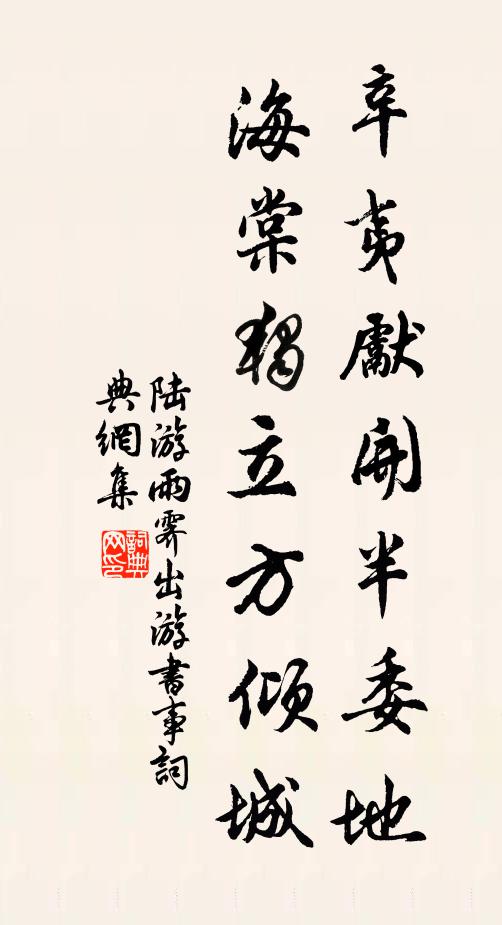 辛夷獻開半委地
海棠獨立方傾城
陆游雨霽出游書事詞
典網集
詞典
网印